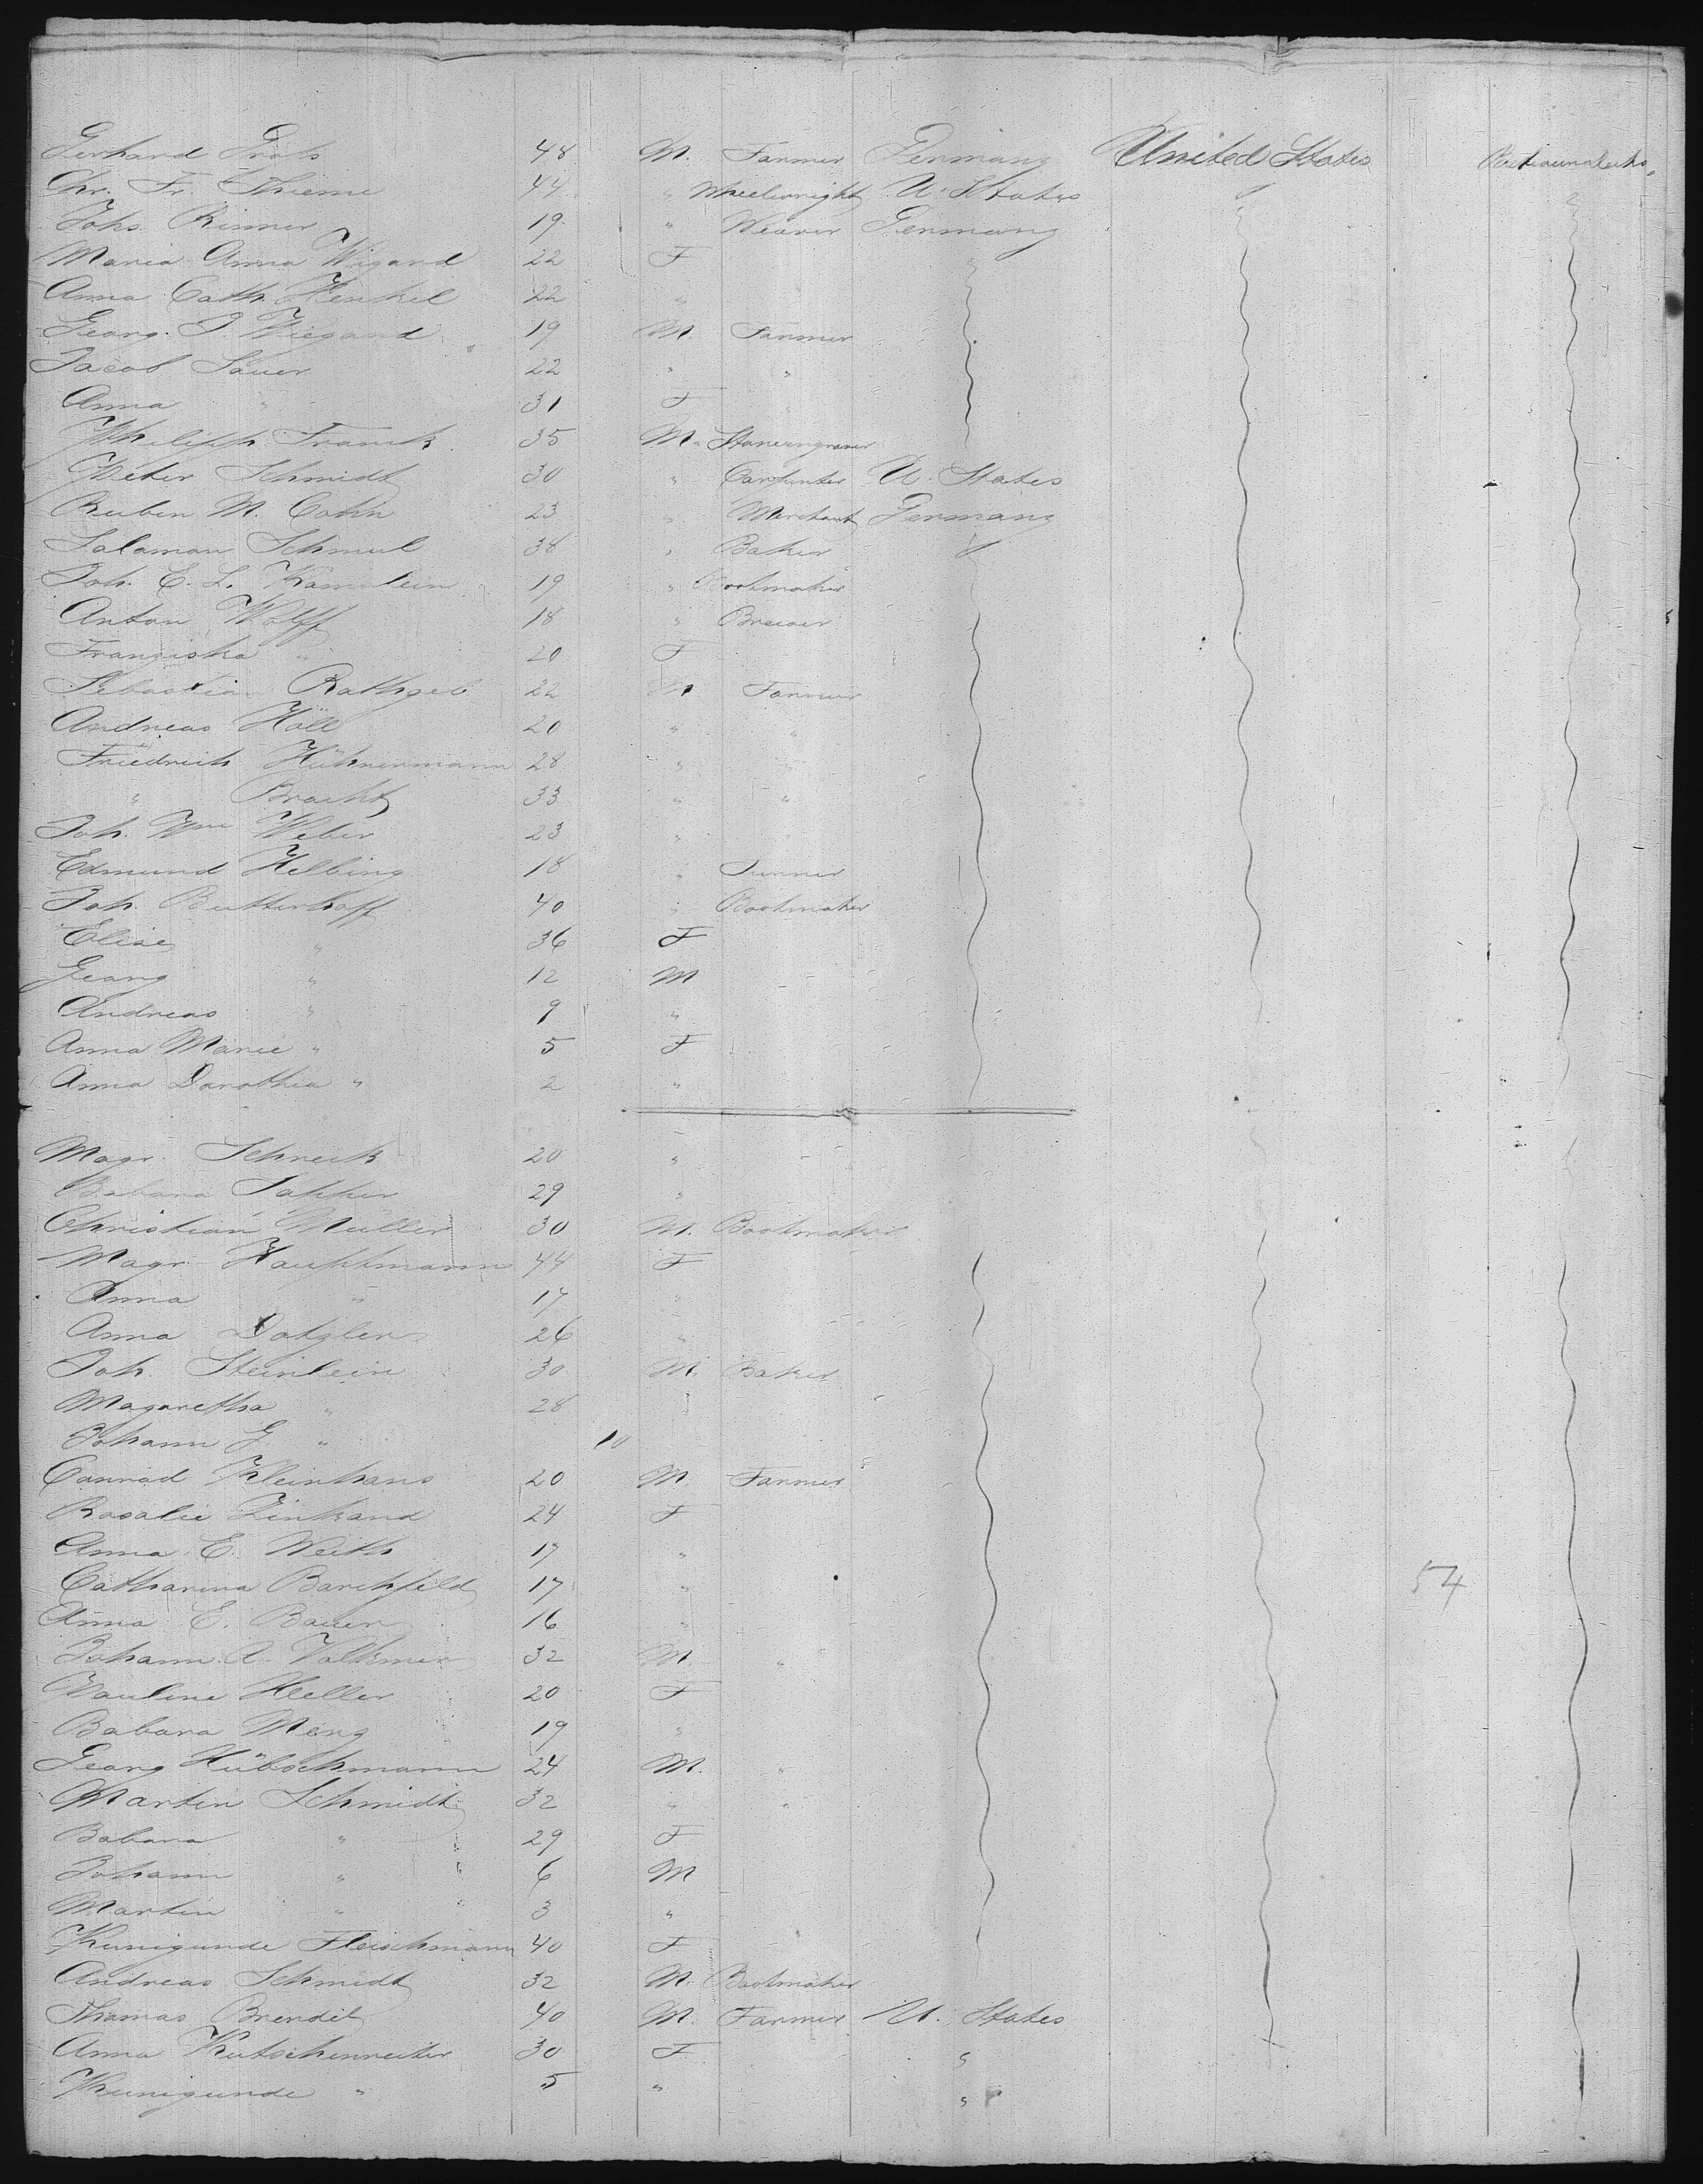 Gerhard Grots 48 M. Farmer Germany United States Between decks
Chr. Fr. Thieme 44 " Wheelwright U. States
Johs. Rimner 19 " Weaver Germany
Maria Anna Wigand 22 F
Anna Cath. Henkel 22 "
Georg. J. Wiegand 19 M. Farmer
Jacob Sauer 22 " "
Anna " 31 F "
Philipp Franck 35 M. Stonengraver
Peter Schmidt 30 " Carpenter U. States
Ruben M. Cohn 23 " Merchant Germany
Salomon Schmul 38 " Baker "
Joh. E. L. Kämlein 19 " Bootmaker
Anton Wolff 18 " Brewer
Franziska " 20 F
Sebastian Rathgeb 22 M Farmer
Andreas Höll 20 " "
Friedrich Hühnermann 28 " "
" Bracht 33 " "
Joh. Wm Weber 23 " "
Edmund Helbing 18 "
Joh. Butterhoff 40 " Bootmaker
Elise " 36 F
Georg " 12 M
Andreas " 9 "
Anna Marie " 5 F
Anna Dorothea " 2 "
Magr. Schreck 20 "
Babara 29 "
Christian Müller 30 M. Bootmaker
Magr. Hauptmann 44 F
Anna " 17 "
Anna 26 "
Joh. Steinlein 30 M. Baker
Magaretha " 28
Johann G. " 10
Conrad Kleinhans 20 M. Farmer
Rosalie Zinkand 24 F
Anna E. Weith 17 "
Catharina Barchfeld 17 " 54
Anna E. Bauer 16 "
Johann A. Volkmer 32 M. "
Pauline Heller 20 F
Babara Menz 19 "
Georg Hübschmann 24 M. "
Martin Schmidt 32 " "
Babara " 29 F
Johann " 6 M
Martin " 3 "
Kunigunde Fleischmann 40 F
Andreas Schmidt 32 M. Bootmaker
Thomas Brendel 40 M. Farmer U. States
Anna Kutschenreiter 30 F "
Kunigunde " 5 " "